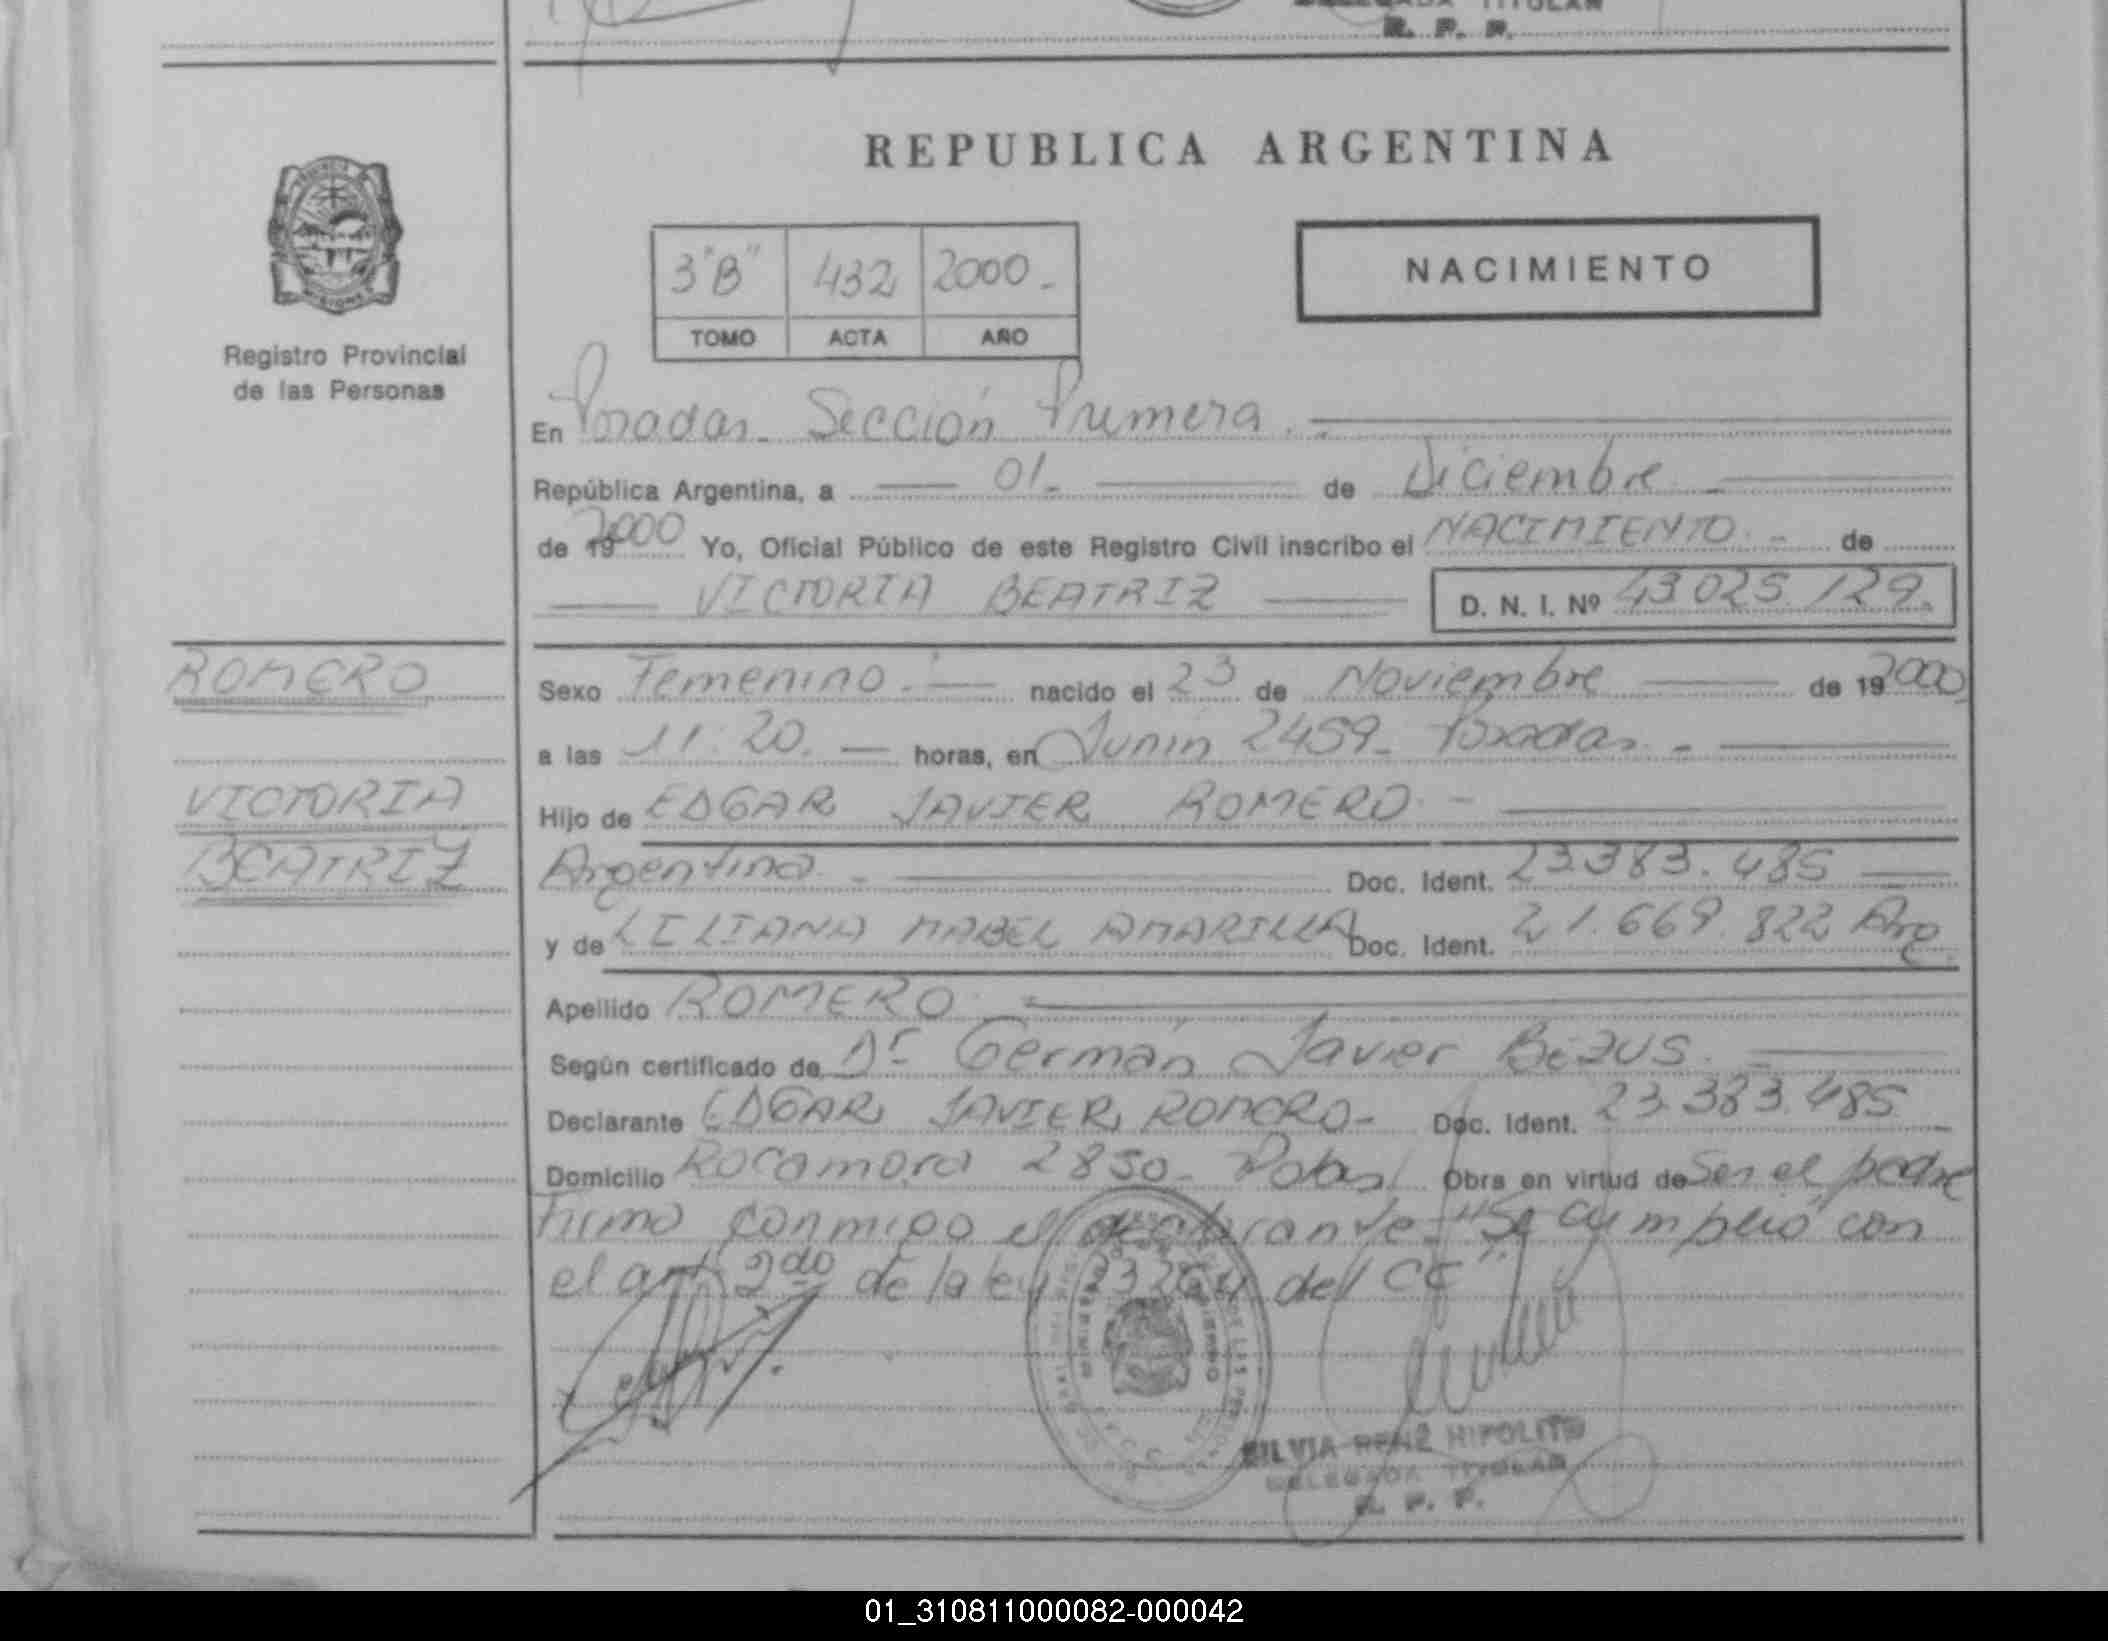 DELEGADA TITULAR
R. P. P.
REPUBLICA ARGENTINA
3"B" 432 2000 -
TOMO ACTA AÑO
NACIMIENTO
Registro Provincial
de las Personas
En Posadas - Sección Primera . -
República Argentina, a 01 - de Diciembre -
de 19 2000 Yo, Oficial Público de este Registro Civil inscribo el NACIMIENTO - de
VICTORIA BEATRIZ D. N. I. Nº 43 025 129.
ROMERO
VICTORIA
BEATRIZ
Sexo Femenino - nacido el 23 de Noviembre de 19 2000
a las 11:20. horas, en Junín 2459 - Posadas -
Hijo de EDGAR JAVIER ROMERO -
Argentino - Doc. Ident. 23.383.485
y de LILIANA MABEL AMARILLA Doc. Ident. 21.669.822 Arg.
Apellido ROMERO
Según certificado de Dr Germán Javier Bezus.
Declarante EDGAR JAVIER ROMERO - Doc. Ident. 23.383.485
Domicilio Rocamora 2850 - Pdas Obra en virtud de Ser el padre
Firma conmigo el declarante - "Se cumplió con
el art 2do de la ley 23264 del CC"
SILVIA HIPOLITO
DELEGADA TITULAR
R. P. P.
01_310811000082-000042